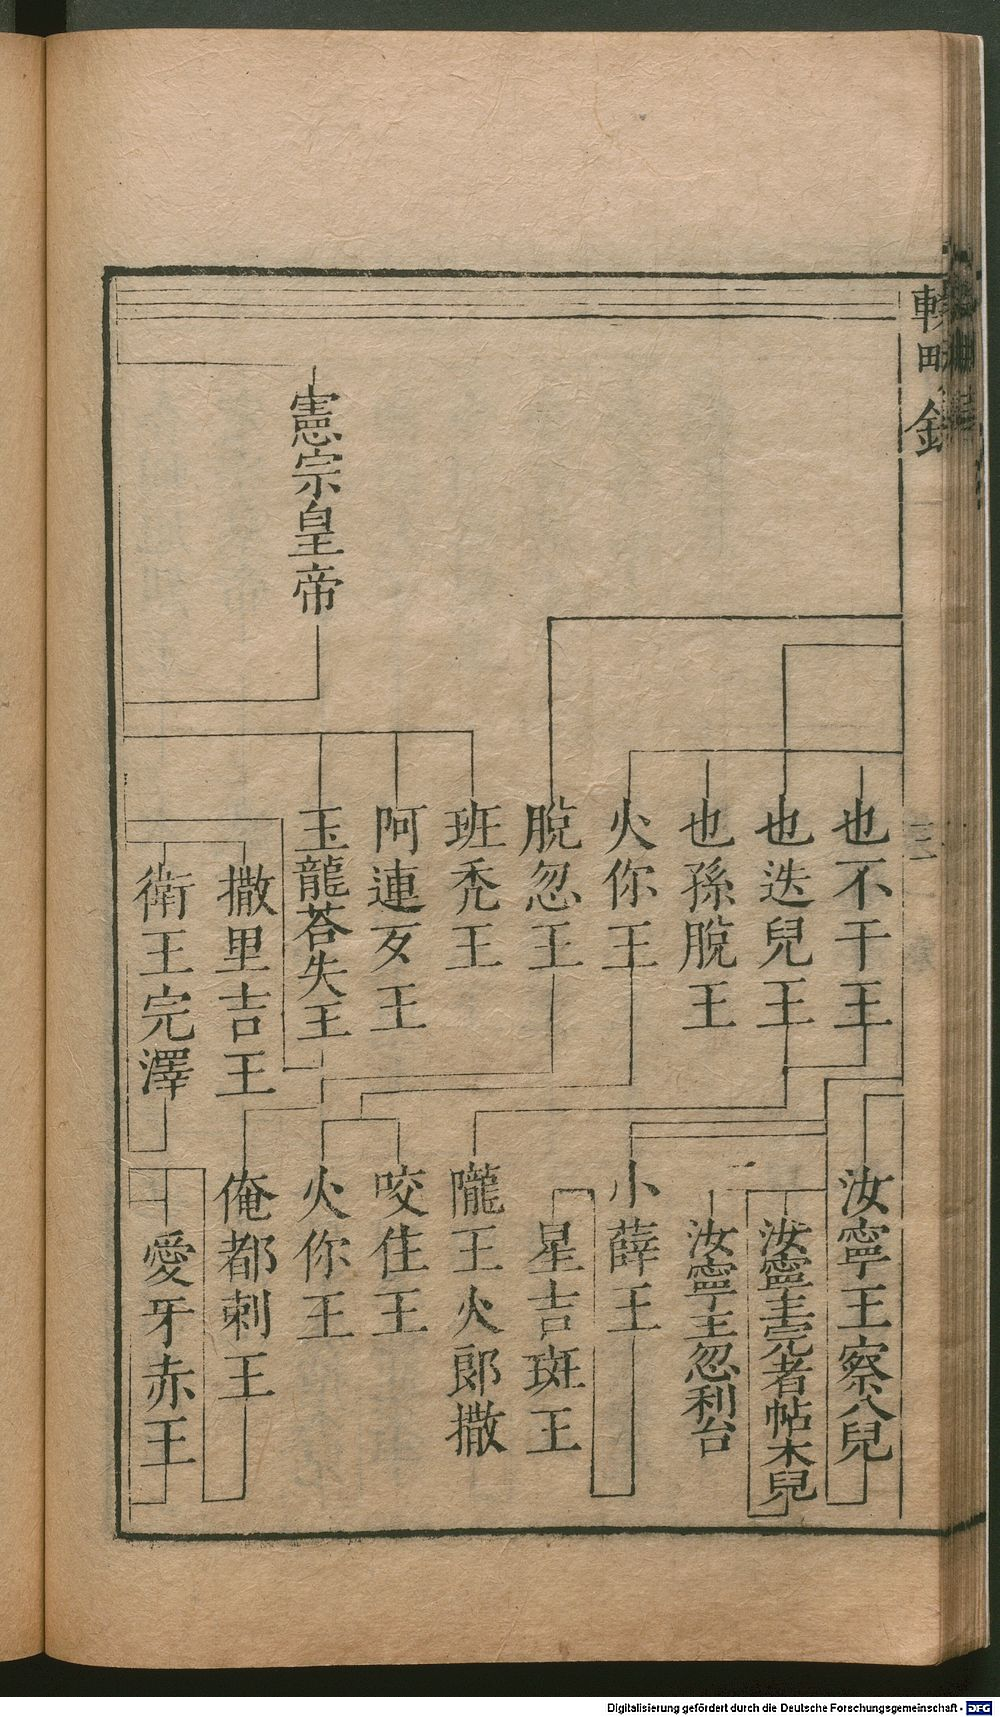 輟畊錄
也不干王
也迭兒王
也孫脫王
火你王
脫忽王
班禿王
阿連𠮟王
玉龍荅失王
憲宗皇帝
撒里吉王
衛王完澤
汝寧王察八兒
汝寧王完者帖木兒
汝寧王忽利台
小薛王
星吉班王
隴王火郎撒
咬住王
火你王
俺都剌王
愛牙赤王
Digitalisierung gefördert durch die Deutsche Forschungsgemeinschaft - DFG